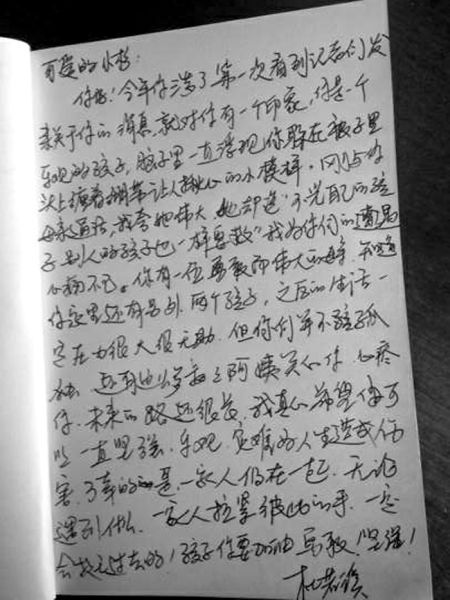 可爱的小彬:
你好!今年你满了 第一次看到记者们发
来关于你的消息,就对你有一个印象,你是一个
乐观的孩子,脑子里一直浮现你躲在被子里
头上绑着绷带让人揪心的小模样,刚与你
母亲通话,我夸她伟大,她却道"不说自己的孩
子,别人的孩子也一样要救"我为你们的遭遇
心痛不已。你有一位勇敢而伟大的母亲,知道
你家里还有另外两个孩子,之后的生活一
定压力很大很无助,但你们并不孤
独,还有 阿姨关心你 心疼
你,未来的路还很长,我真心希望你可
以一直坚强、乐观,灾难为人生造成伤
害,万幸的是,一家人仍在一起,无论
遇到什么,一家人拉紧彼此的手,一定
会挺过去的!孩子你要加油 勇敢,坚强!